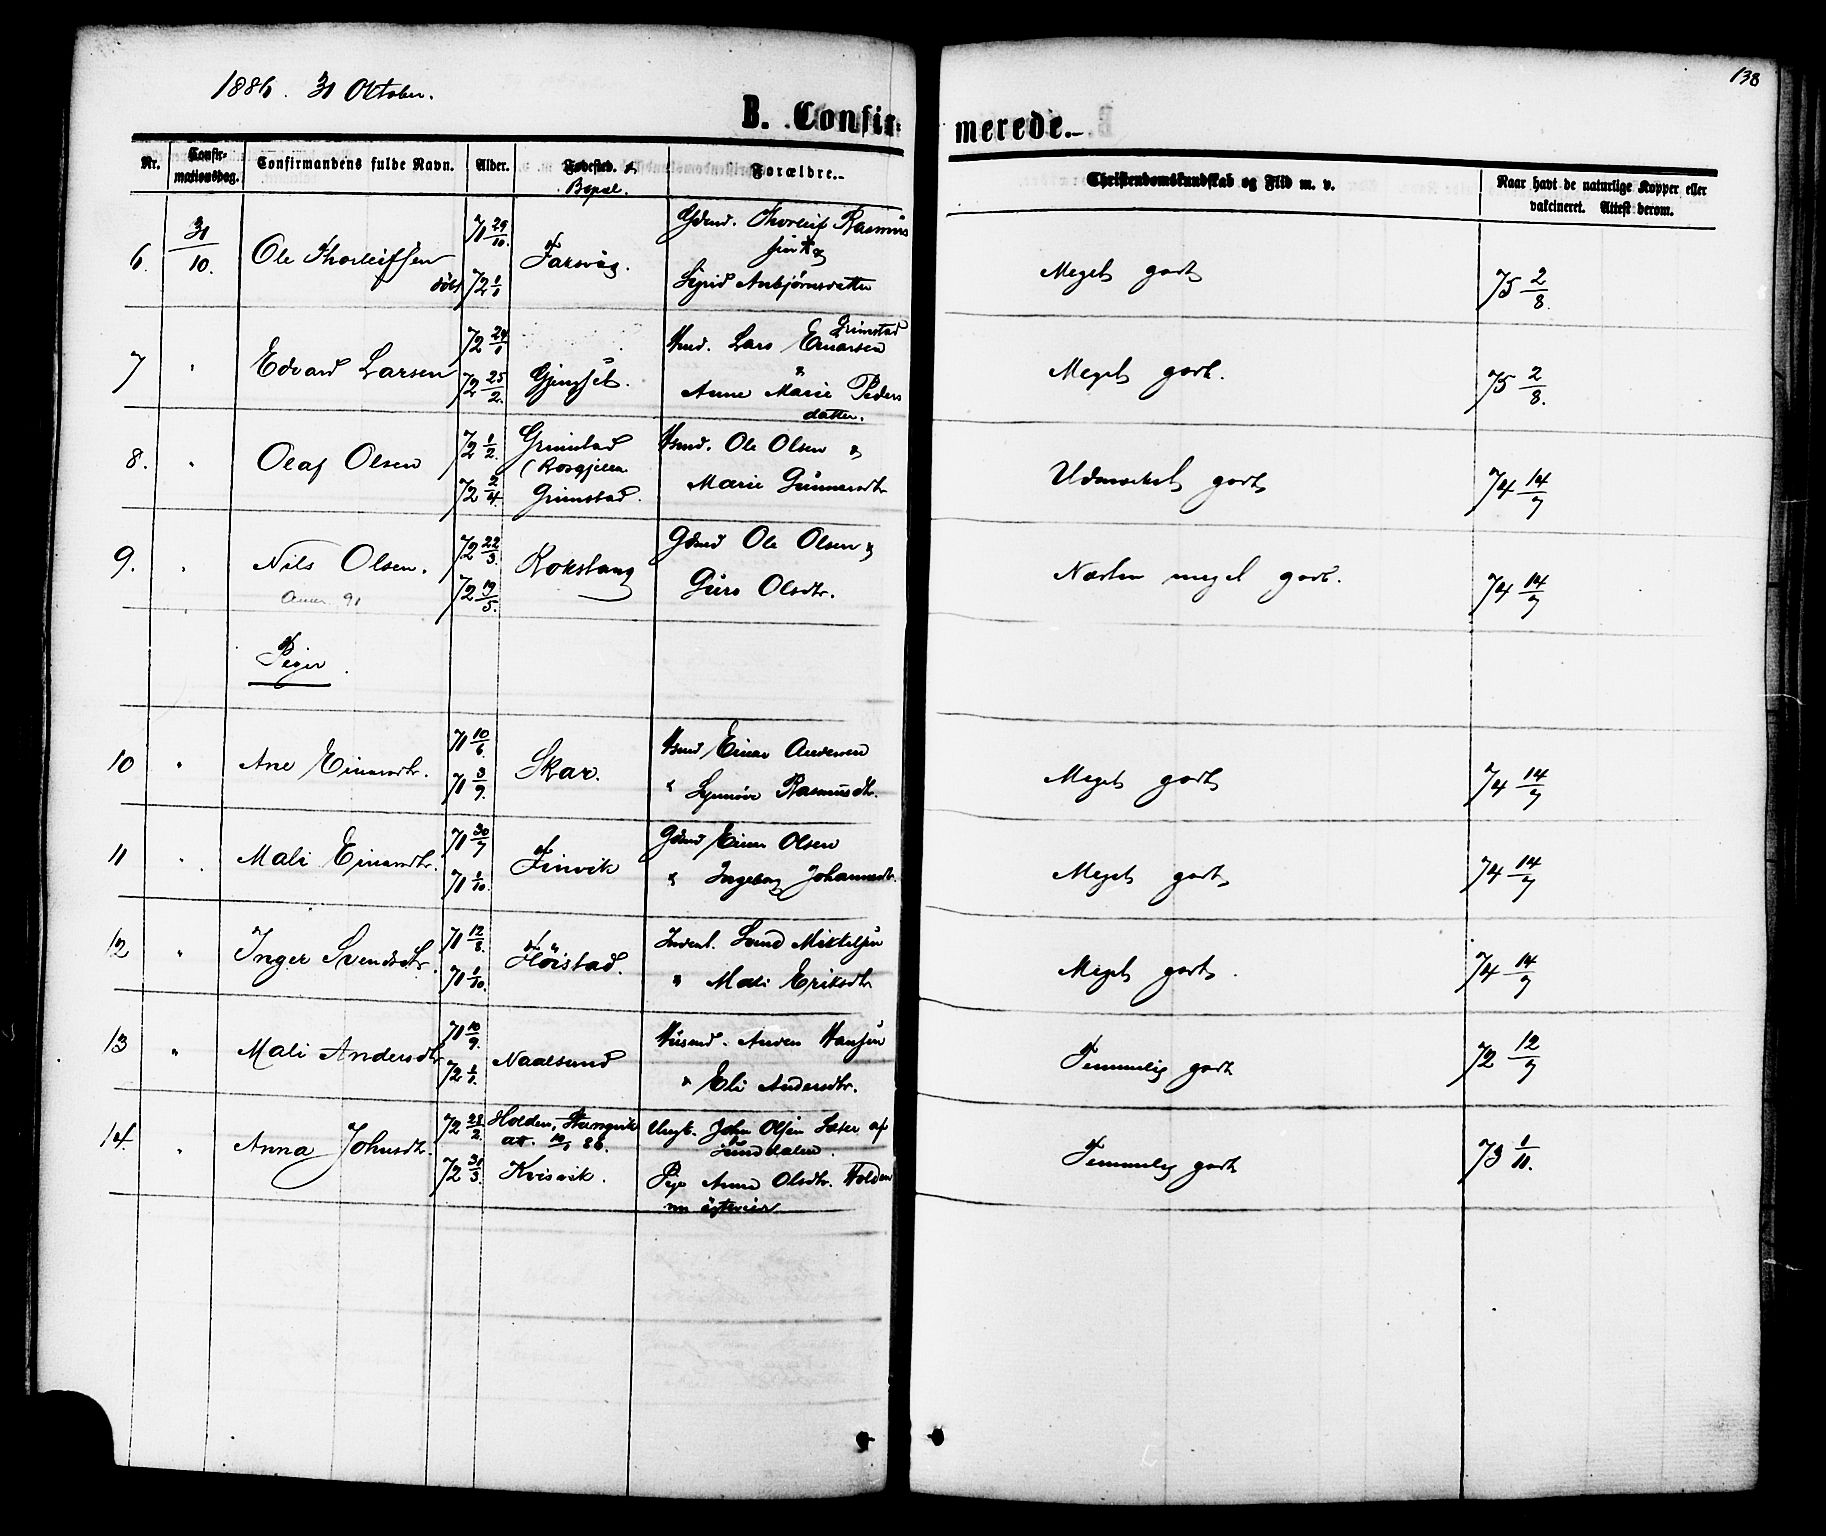 1886. 31 Oktober.
138
B. Confirmerede.
Nr.
Confirmationsdag.
Confirmandens fulde Navn.
Alder.
Fødested. & Bopæl.
Forældre.
Christendomskundskab og Flid m. v.
Naar havt de naturlige Kopper eller vakcineret. Attest derom.
6. 31/10. Ole Thorleifsen døbt 71 29/10. 72 1/1 Farsvig. Gdmd. Thorleif Rasmussen & Sigrid Anbjørnsdatter Meget godt 75 2/8.
7 " Edvard Larsen 72 24/1 72 25/2. Gjengset. Hmd. Lars Einarsen Grimstad & Anne Marie Pedersdatter. Meget godt. 75 2/8.
8. " Olaf Olsen 72 1/2. 72 2/4. Grimstad Grimstad. Hsmd. Ole Olsen & Marie Gunnarsdtr Udmærket godt 74 14/7
9. " Nils Olsen. 72 22/3. 72 19/5. Rokstang Gdmd Ole Olsen & Guro Olsdtr. Næsten meget godt. 74 14/7
91
Piger.
10 " Ane Einarsdtr. 71 10/6. 71 3/9. Skar. Hsmd Einar Andersen " Synnøve Rasmusdtr. Meget godt 74 14/7
11 " Mali Einarsdtr. 71 30/7 71 1/10. Finvik Gdmd Einar Olsen " Ingeborg Johannesdtr. Meget godt 74 14/7
12 " Inger Svendsdtr. 71 12/8. 71 1/10. Høistad. Svend Mikkelsen " Mali Eriksdtr Meget godt. 74 14/7
13 " Mali Andersdtr 71 10/9. 72 1/1. Naalsund Husmd. Anders Hansen " Eli Andersdtr. Temmelig godt 72 12/7
14. " Anna Johnsdtr. 72 28/2. 72 31/3. Holden, Stangvik att. 86. Kvisvik. Ungk. John Olsen Sæter af Sunddalen. Pige Anne Olsdtr. Holden nu Temmelig godt 73 1/11.